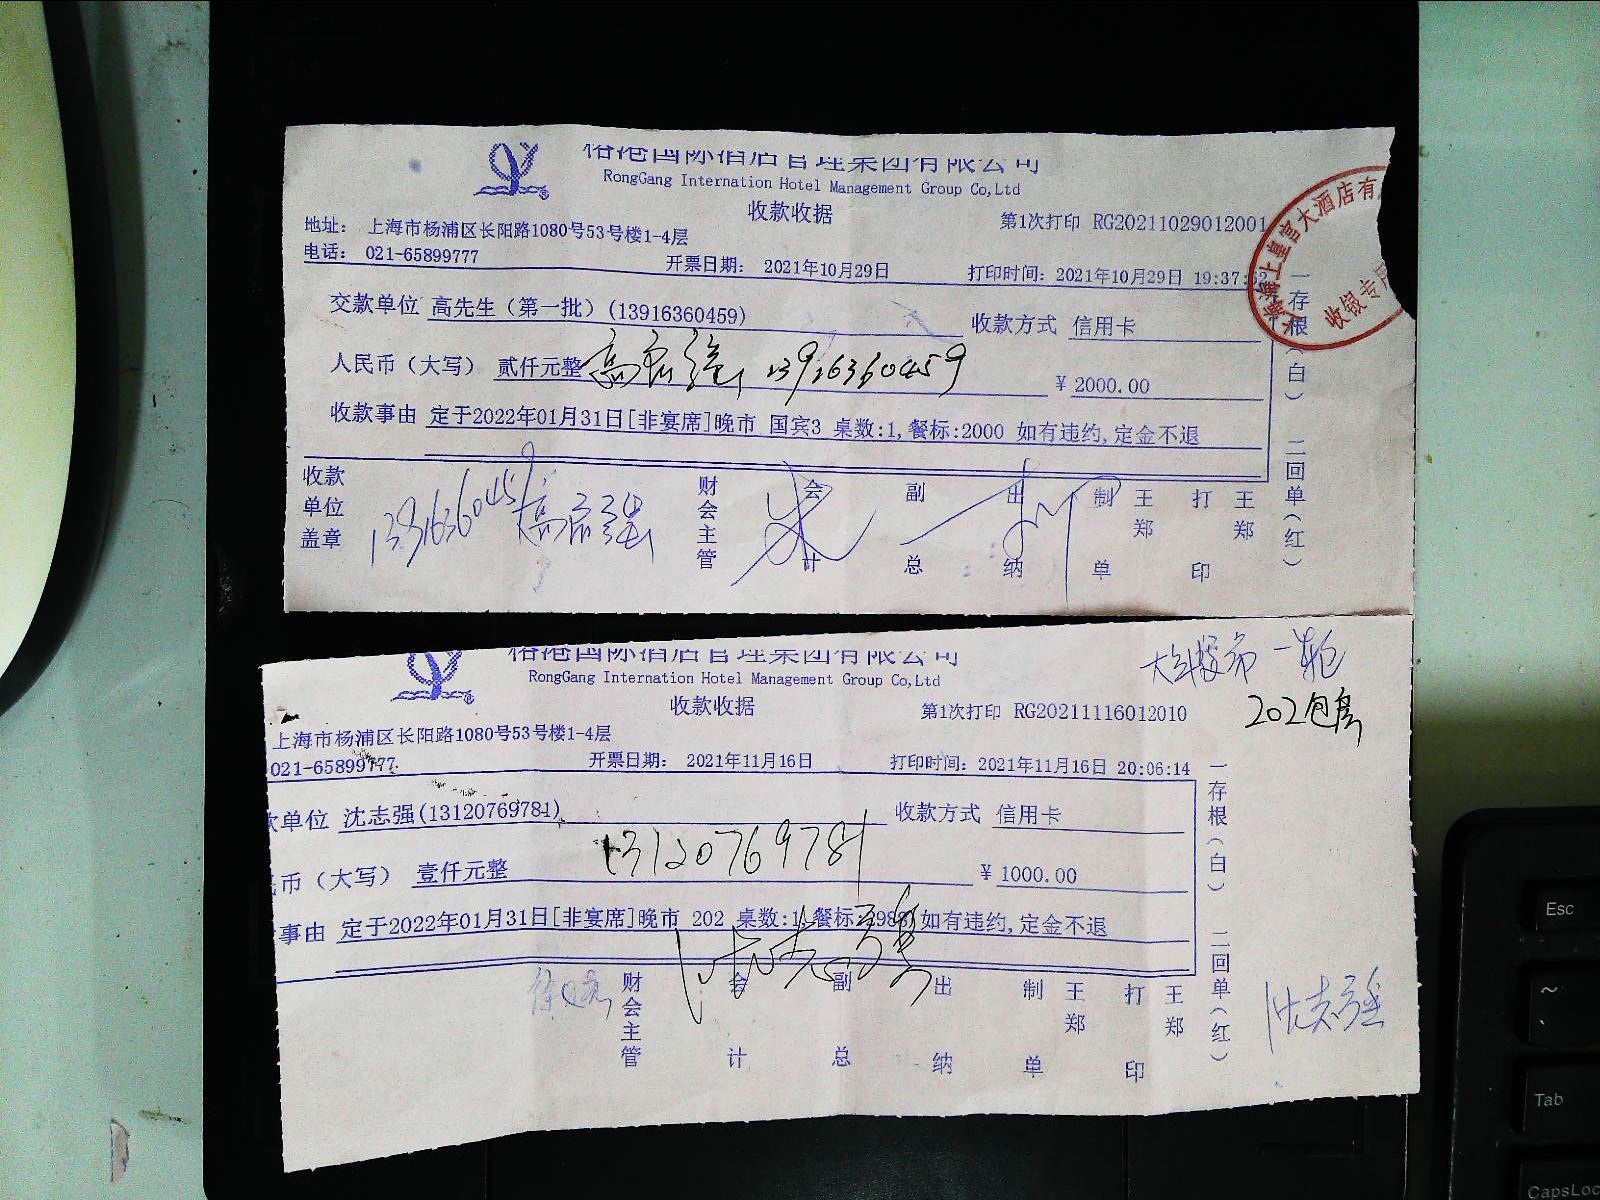 裕港国际酒店管理集团有限公司
RongGang Internation Hotel Management Group Co,Ltd
收款收据
第1次打印 RG20211029012001
地址: 上海市杨浦区长阳路1080号53号楼1-4层
电话: 021-65899777
开票日期: 2021年10月29日
打印时间: 2021年10月29日 19:37:32
交款单位 高先生(第一批)(13916360459)
收款方式 信用卡
人民币(大写) 贰仟元整
13916360459
¥ 2000.00
收款事由 定于2022年01月31日[非宴席]晚市 国宾3 桌数:1,餐标:2000 如有违约,定金不退
收款单位盖章
13916360459
财会主管
会计
副总
出纳
制单
王郑
打印
王郑
一存根(白) 二回单(红)
上海上皇宫大酒店有
收银专用
裕港国际酒店管理集团有限公司
RongGang Internation Hotel Management Group Co,Ltd
收款收据
第1次打印 RG20211116012010
202包房
上海市杨浦区长阳路1080号53号楼1-4层
021-65899777
开票日期: 2021年11月16日
打印时间: 2021年11月16日 20:06:14
款单位 沈志强(13120769781)
收款方式 信用卡
民币(大写) 壹仟元整
13120769781
¥ 1000.00
事由 定于2022年01月31日[非宴席]晚市 202 桌数:1,餐标:2988 如有违约,定金不退
沈志强
财会主管
会计
副总
出纳
制单
王郑
打印
王郑
一存根(白) 二回单(红)
沈志强
Esc
~
Tab
CapsLoc